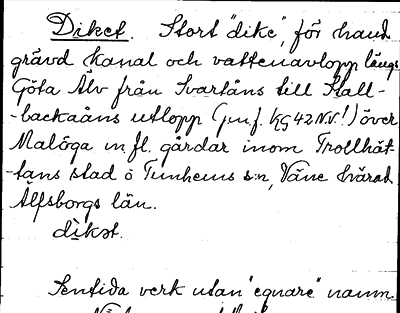 Diket. Stort "dike", för hand
grävd kanal och vattenavlopp längs
Göta Älv från Svartåns till Stall-
-backaåns utlopp (jmf. KG 42 NV!) över
Malöga m.fl. gårdar inom Trollhät-
-tans stad o Tunhems s:n, Väne härad
Älfsborgs län.
dìkət.
Sentida verk utan "egnare" namn.